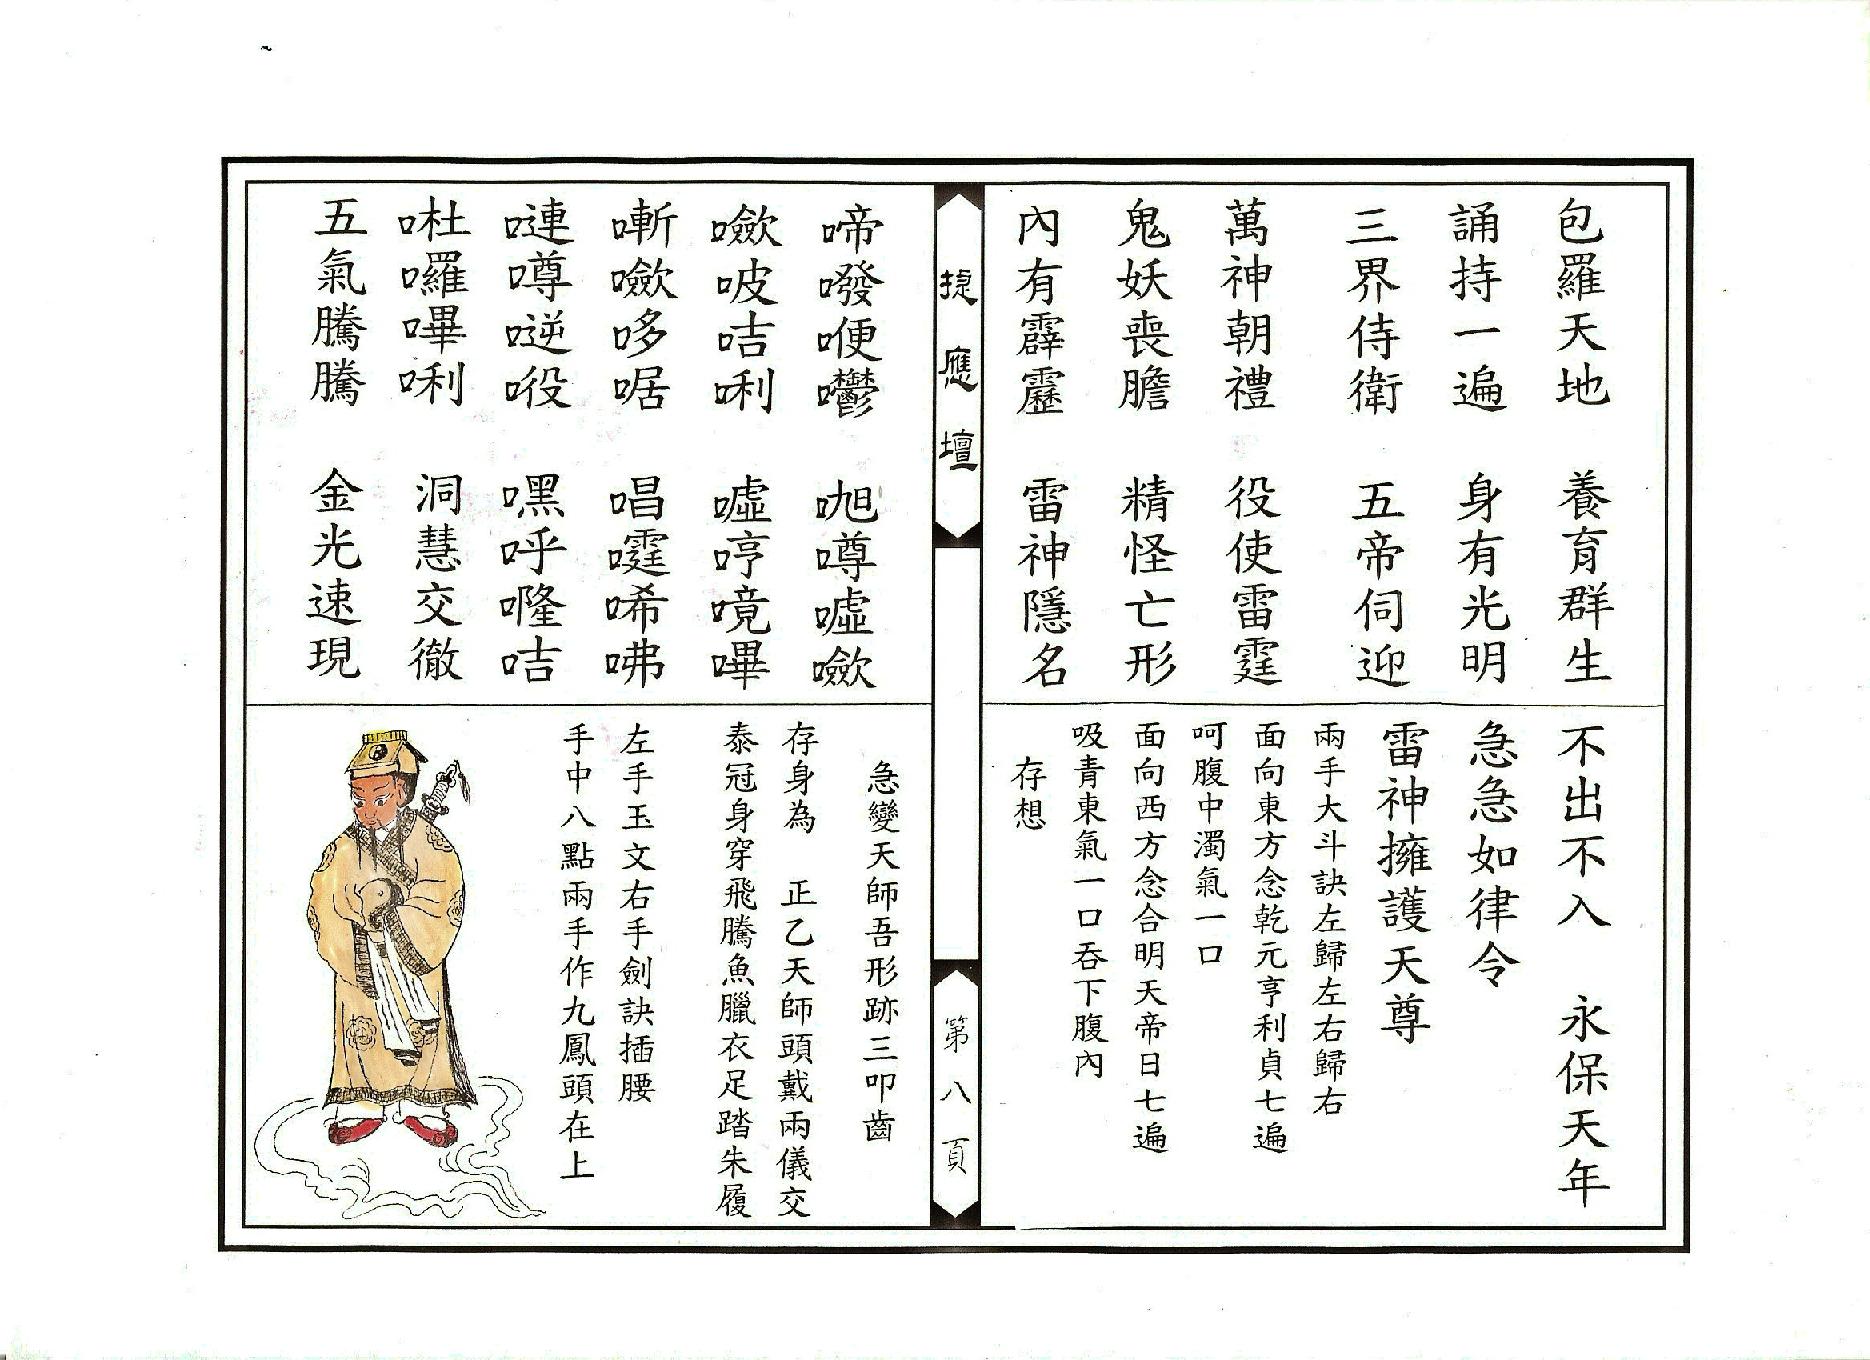 包羅天地 養育群生
誦持一遍 身有光明
三界侍衛 五帝伺迎
萬神朝禮 役使雷霆
鬼妖喪膽 精怪亡形
內有霹靂 雷神隱名
啼 噂噓
咭唎 噓哼嗶
哆啹 唱唏咈
嗹噂 嘿呼咭
囉嗶唎 洞慧交徹
五氣騰騰 金光速現
不出不入 永保天年
急急如律令
雷神擁護天尊
兩手大斗訣左歸左右歸右
面向東方念乾元亨利貞七遍
呵腹中濁氣一口
面向西方念合明天帝日七遍
吸青東氣一口吞下腹內
存想
急變天師吾形跡三叩齒
存身為 正乙天師頭戴兩儀交
泰冠身穿飛騰魚臘衣足踏朱履
左手玉文右手劍訣插腰
手中八點兩手作九鳳頭在上
捷應壇
第八頁